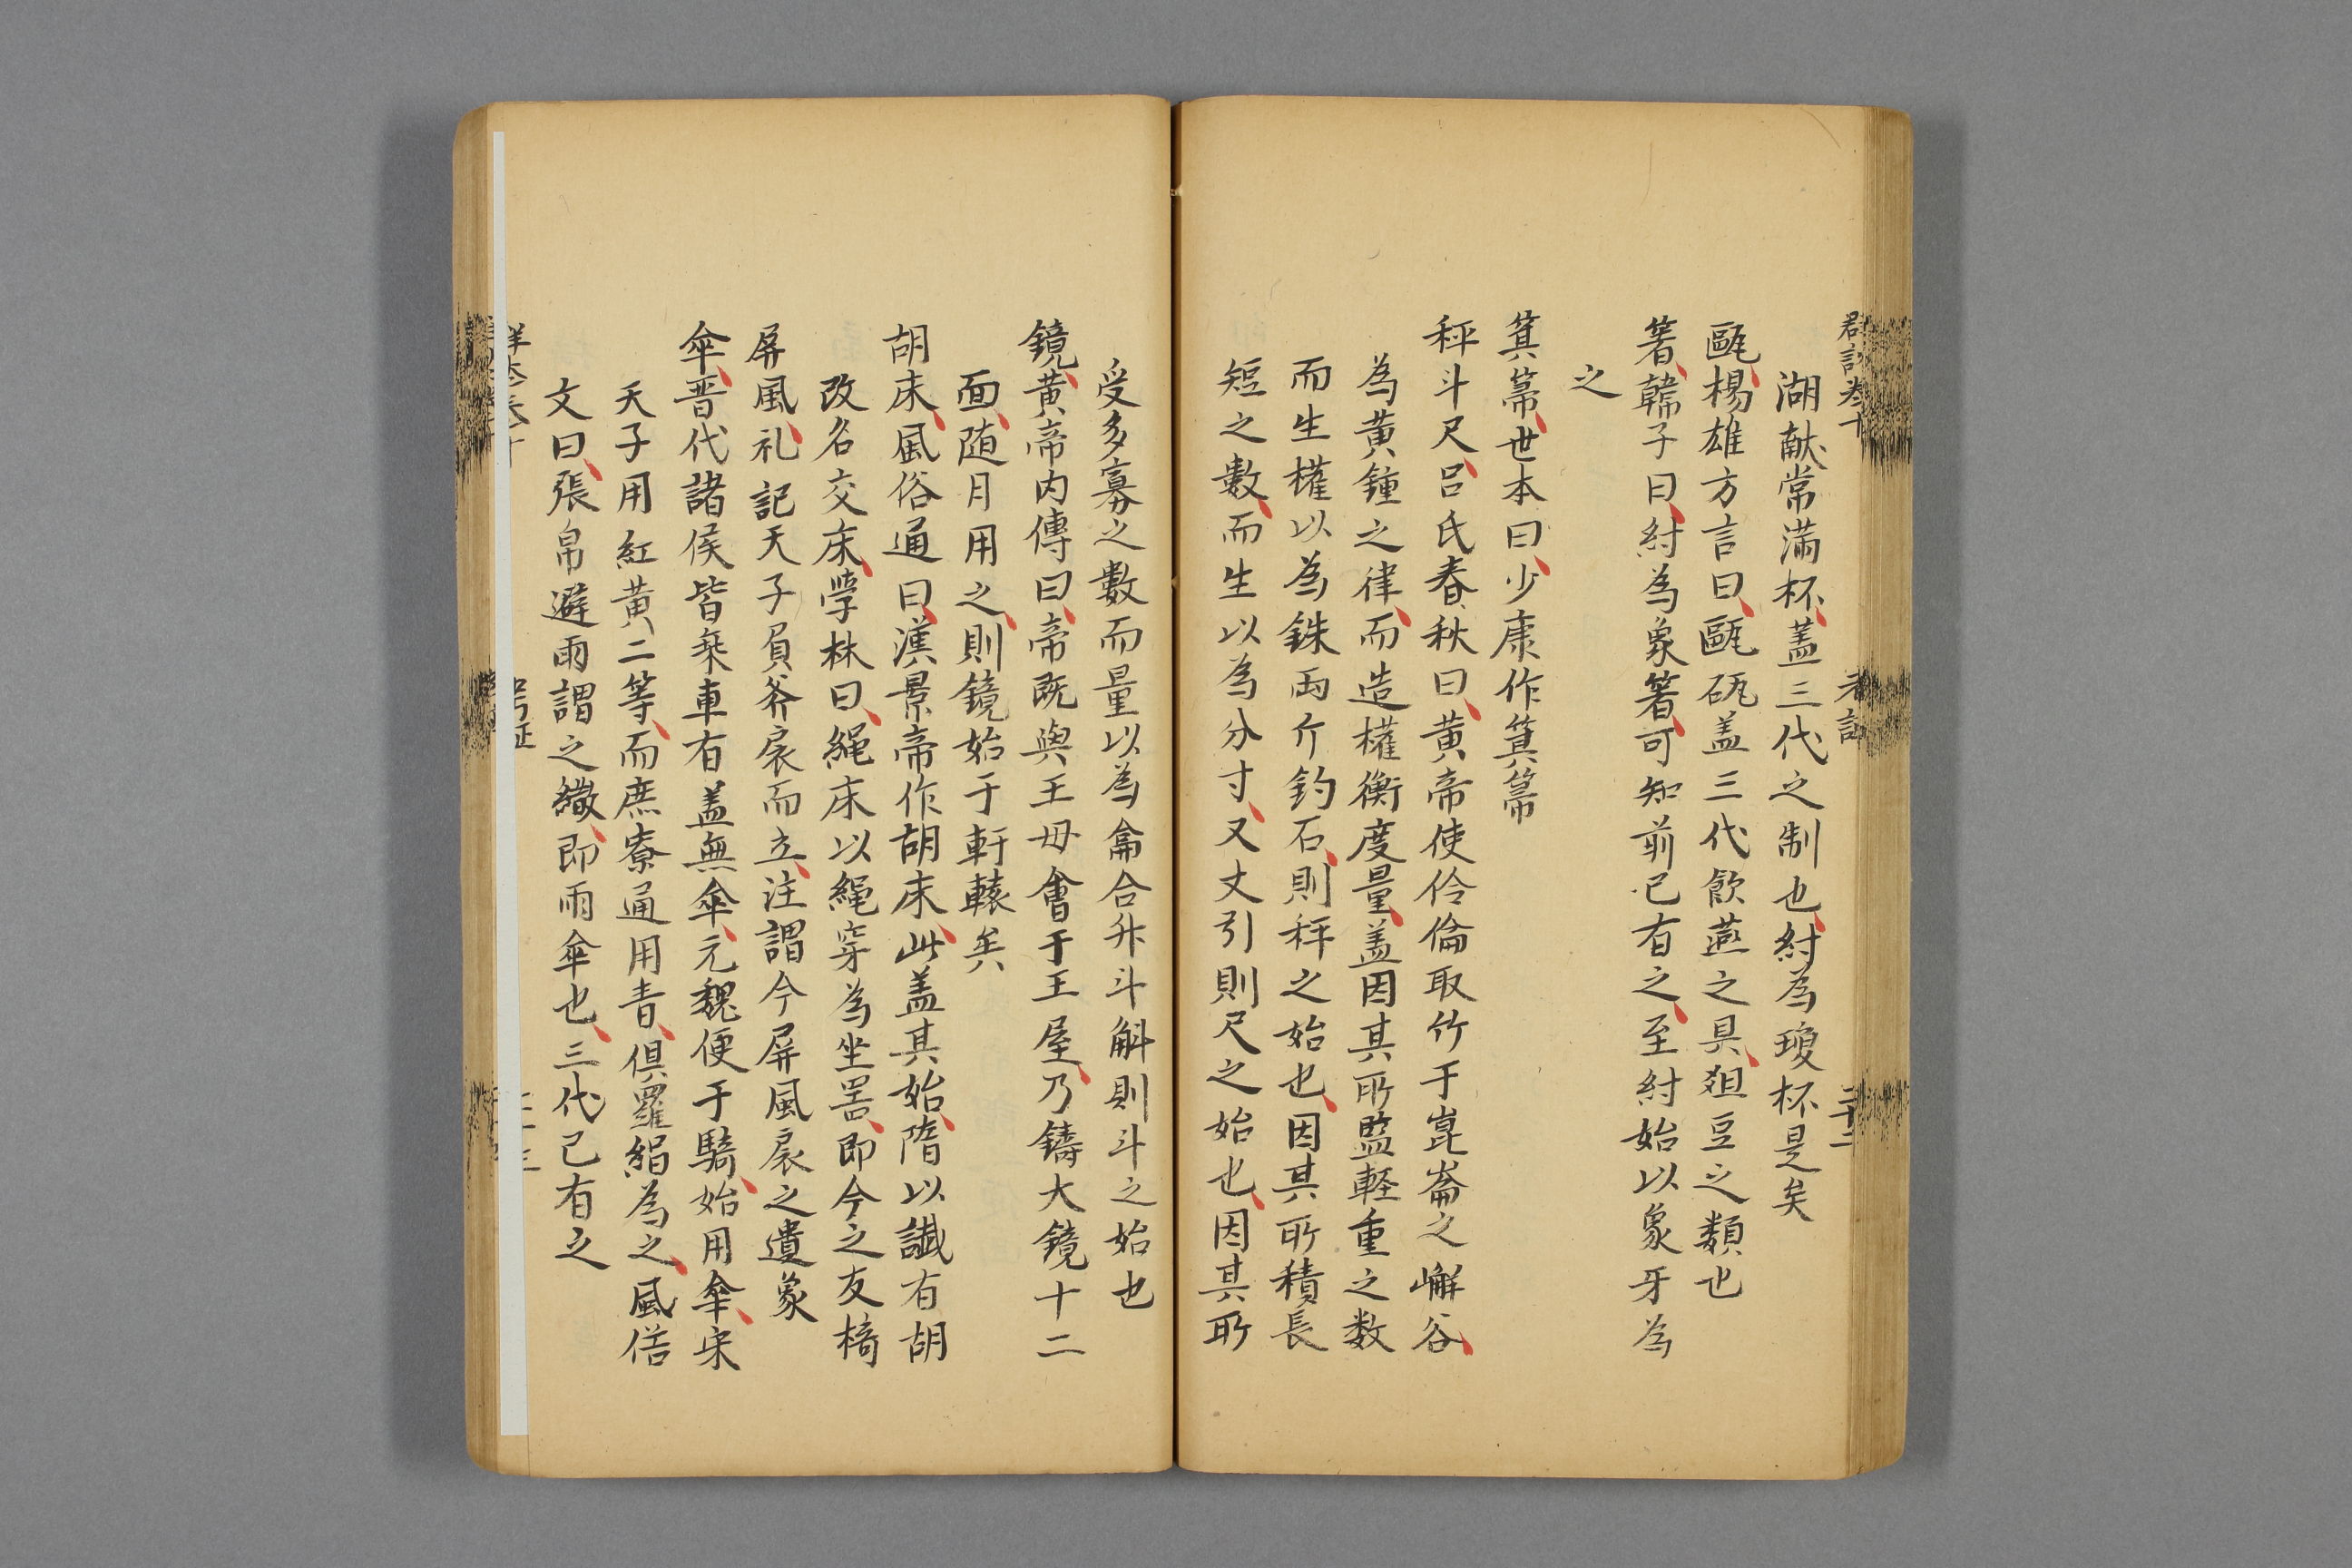 湖献常滿杯蓋三代之制也紂為瓊杯是矣
甌楊雄方言曰甌㼚盖三代飲燕之具爼豆之類也
箸韓子曰紂為象箸可知前已有之至紂始以象牙為
之
箕箒世本曰少康作箕箒
秤斗尺吕氏春秋曰黄帝使伶倫取竹于崑崙之嶰谷
為黄鍾之律而造權衡度量盖因其所監軽重之数
而生權以為銖兩斤鈞石則秤之始也因其所積長
短之數而生以為分寸又丈引則尺之始也因其所
受多寡之數而量以為龠合升斗斛則斗之始也
鏡黄帝内傳曰帝既與王母會于王屋乃鑄大鏡十二
面随月用之則鏡始于軒轅矣
胡床風俗通曰漢景帝作胡床此盖其始隋以讖有胡
改名交床學林曰繩床以繩穿為坐罟即今之友椅
屏風礼記天子負斧扆而立注謂今屏風扆之遺象
傘晋代諸侯皆乗車有盖無傘元魏便于騎始用傘宋
天子用紅黄二等而庶寮通用青俱羅絹為之風俗
文曰張帛避雨謂之繖即雨傘也三代已有之